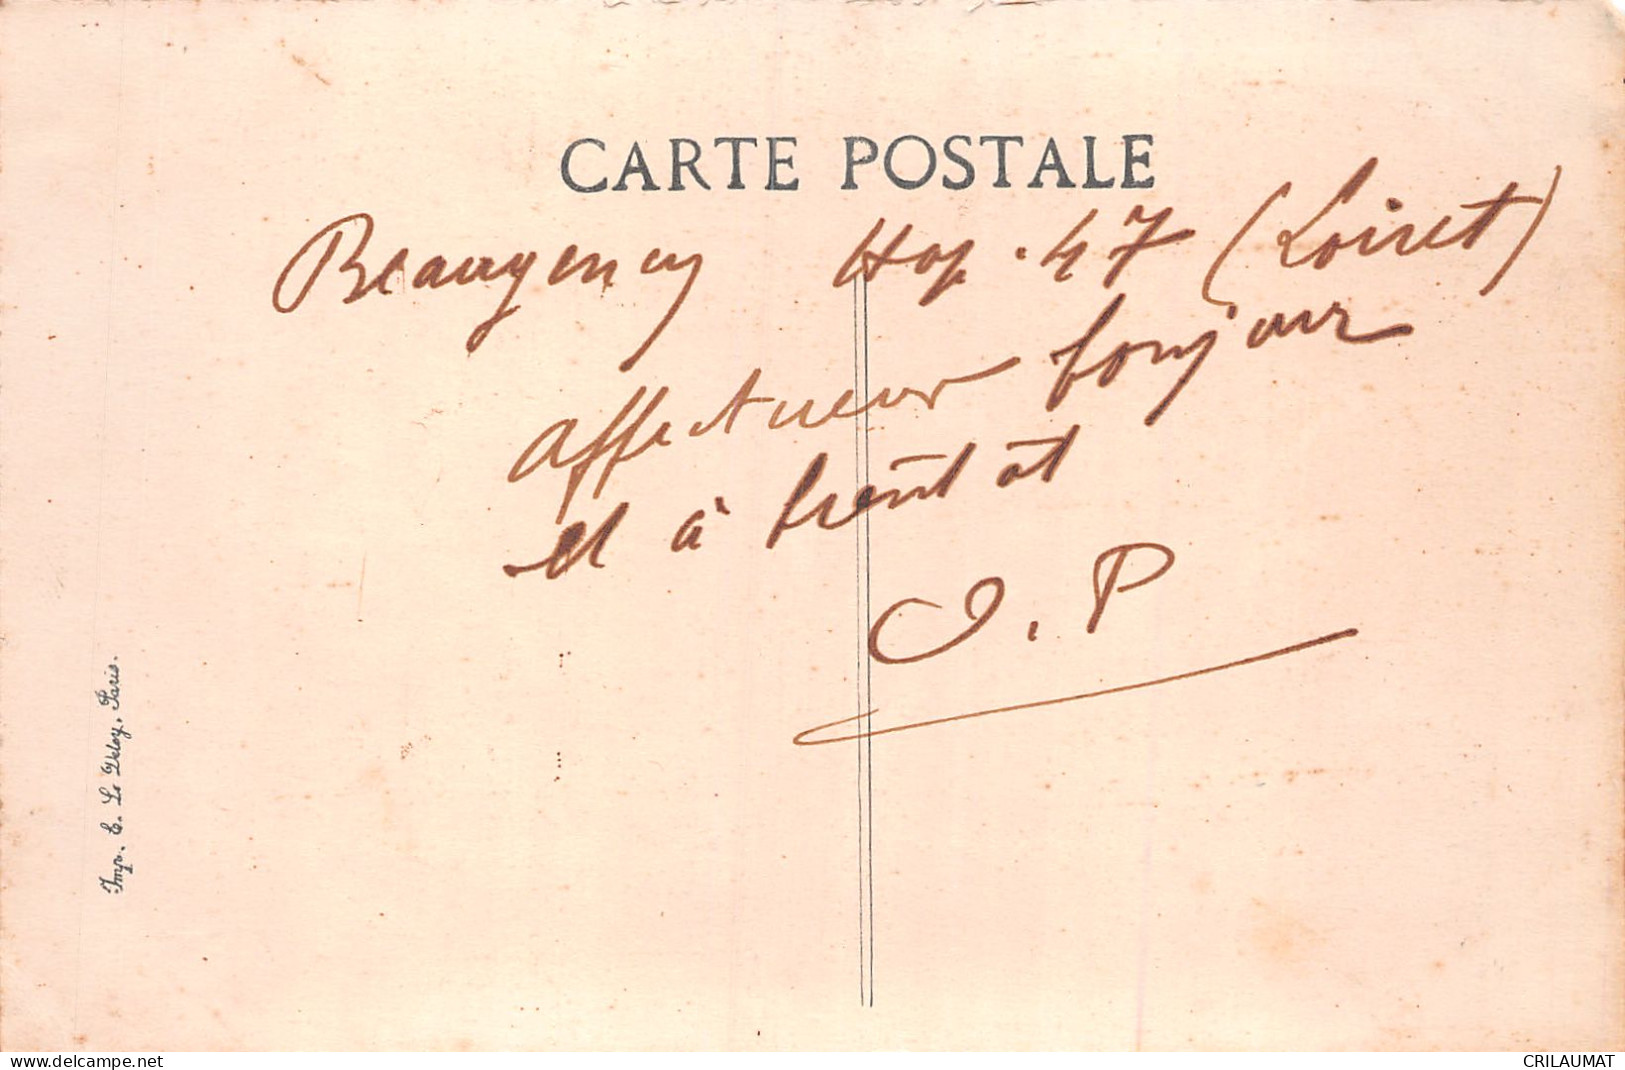 CARTE POSTALE
Beaugency Hop. 47 (Loiret)
affectueux bonjour
et à bientôt
O. P
Imp. E. Le Deley, Paris.
www.delcampe.net
CRILAUMAT